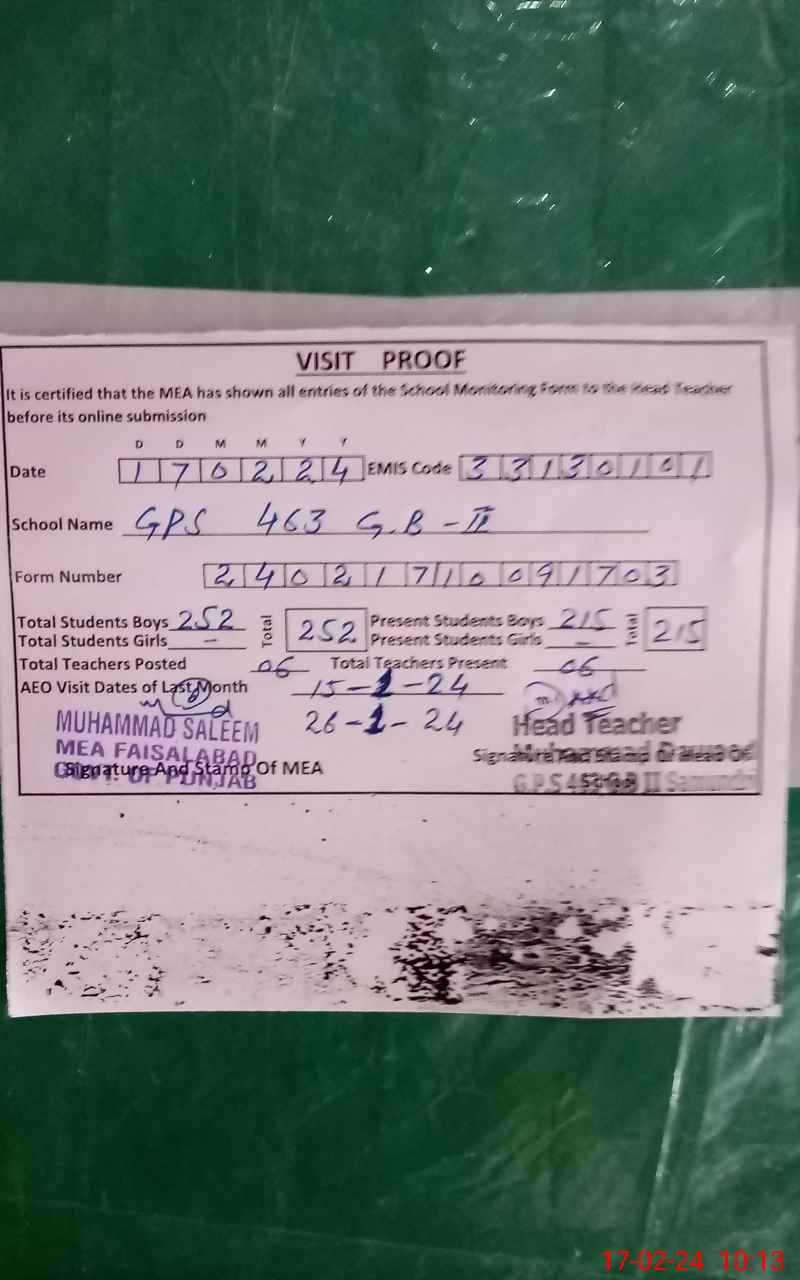 VISIT PROOF
It is certified that the MEA has shown all entries of the School Monitoring Form to the Head Teacher
before its online submission
D D M M Y Y
Date 170224 EMIS Code 33130101
School Name GPS 463 G.B - II
Form Number 24021710091703
Total Students Boys 252 Total 252 Present Students Boys 215 Total 215
Total Students Girls - Present Students Girls -
Total Teachers Posted 06 Total Teachers Present 06
AEO Visit Dates of Last Month 15-1-24
26-1-24
MUHAMMAD SALEEM
MEA FAISALABAD
GOVT. OF PUNJAB
Signature And Stamp Of MEA
Head Teacher
Signature And Stamp Of Head
G.P.S 463 G B II Samundri
17-02-24 10:13